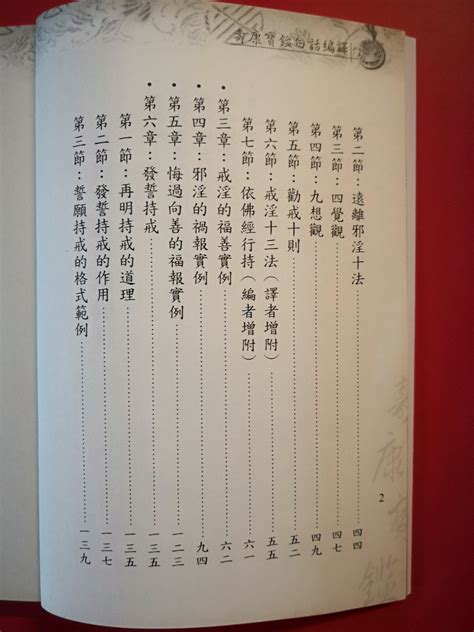 壽康寶鑑白話編譯
第二節：遠離邪淫十法 四四
第三節：四覺觀 四七
第四節：九想觀 四九
第五節：勸戒十則 五二
第六節：戒淫十三法（譯者增附） 五五
第七節：依佛經行持（編者增附） 六一
•第三章：戒淫的福善實例 六二
•第四章：邪淫的禍報實例 九四
•第五章：悔過向善的福報實例 一二三
•第六章：發誓持戒 一三五
第一節：再明持戒的道理 一三五
第二節：發誓持戒的作用 一三七
第三節：誓願持戒的格式範例 一三九
2
壽康寶鑑